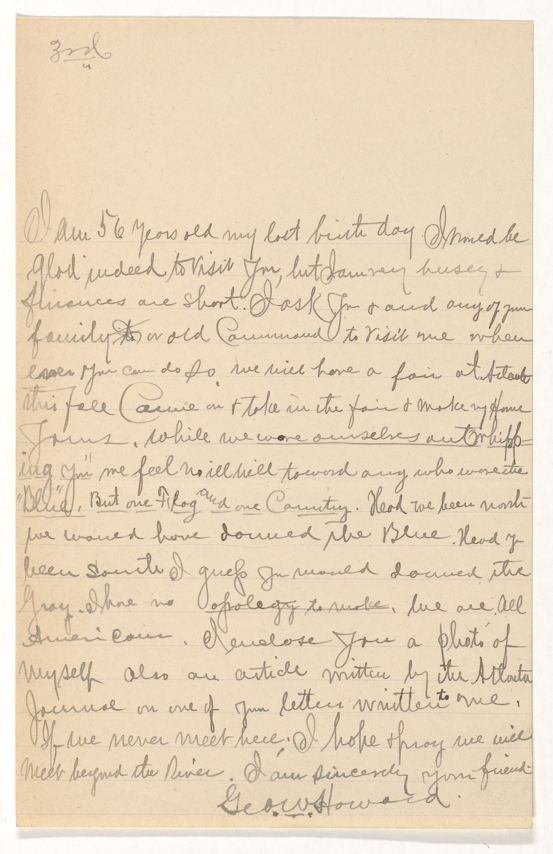 3rd
I am 56 years old my last birth day I would be
glad indeed to visit you, but I am very busey &
finances are short. I ask you & and any of your
family to or old Command to visit me when
ever you can do so we will have a fair at Atlanta
this fall Come on & take in the fair & make my home
yours. While we wore ourselves out "whipp-
ing you" we feel no ill will toword any who wore the
"Blue". But one Flag and one Country. Head we been north
we would have donned the Blue. Head you
been South I guess you would donned the
Gray. I have no apology to make. We are All
Americans. I enclose you a photo of
myself also an article written by the Atlanta
Journal on one of your letters written to me.
If we never meet here, I hope & pray we will
meet beyond the River. I am sincerely your friend
Geo. W. Howard.